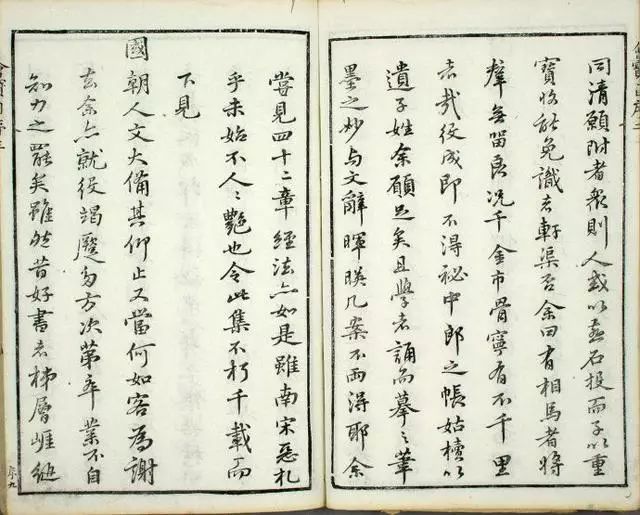 同清願附者衆則人或以燕石投而子以重
寶收能免識者軒渠否余曰有相馬者將
群無留良况千金市骨寧有不千里
者哉絞成即不得祕中郎之帳姑櫝以
遺子姓余願足矣且學者誦而摹之筆
墨之妙与文辭暉暎几案不兩得耶余
嘗見四十二章經法亦如是雖南宋惡札
乎未始不人〻艷也令此集不朽千載而
下見
國朝人文大備其仰止又當何如客為謝
去余亦就役竭蹷方次第卒業不自
知力之罷矣雖然昔好書者梯層崕縋
序九